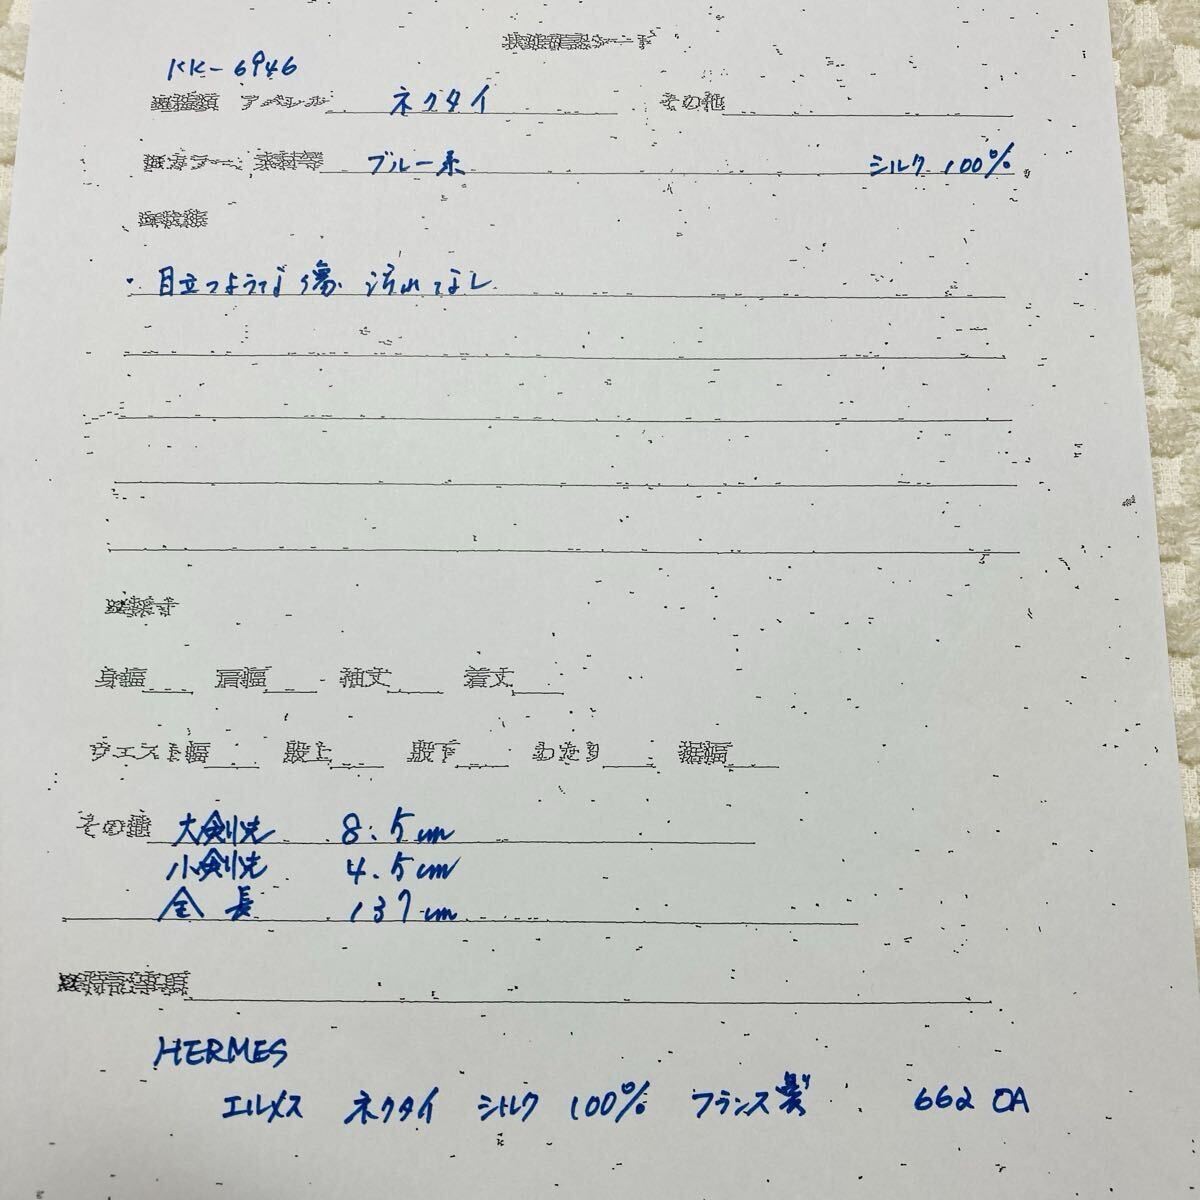 状態確認シート
KK-6946
アパレル ネクタイ その他
カラー・素材等 ブルー系 シルク 100%
・目立つような傷、汚れなし
採寸
身幅 肩幅 袖丈 着丈
ウエスト幅 股上 股下 わたり 裾幅
その他 大剣先 8.5cm
小剣先 4.5cm
全長 137cm
特記事項
HERMES
エルメス ネクタイ シルク 100% フランス製 662 OA